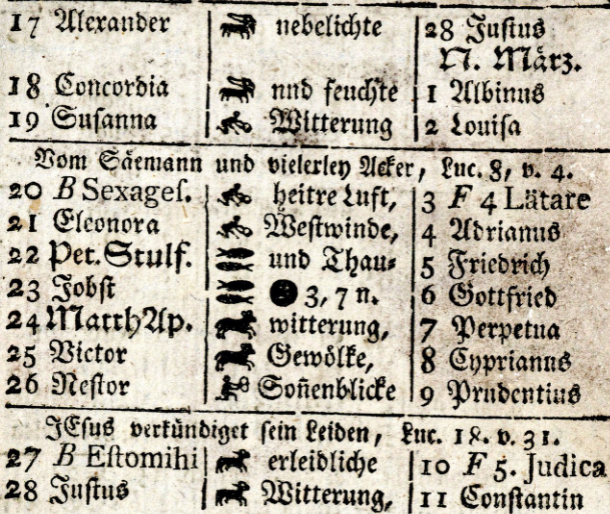 17 Alexander nebelichte 28 Justus
N. März.
18 Concordia nnd feuchte 1 Albinus
19 Susanna Witterung 2 Louisa
Vom Säemann und vielerley Acker, Luc. 8, v. 4.
20 B Sexages. heitre Luft, 3 F 4 Lätare
21 Eleonora Westwinde, 4 Adrianus
22 Pet. Stulf. und Thau- 5 Friedrich
23 Jobst 3, 7 n. 6 Gottfried
24 Matth Ap. witterung, 7 Perpetua
25 Victor Gewölke, 8 Cyprianus
26 Nestor Son̄enblicke 9 Prudentius
JEsus verkündiget sein Leiden, Luc. 18. v. 31.
27 B Estomihi erleidliche 10 F 5. Judica
28 Justus Witterung, 11 Constantin